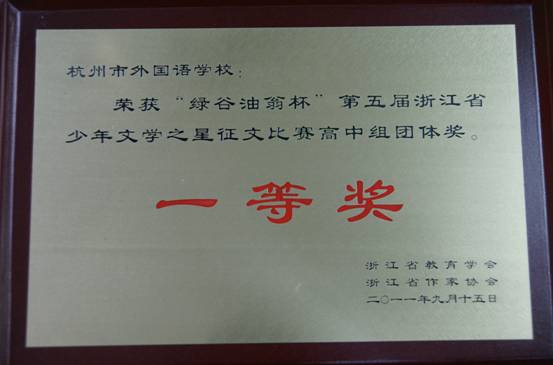 杭州市外国语学校：
荣获“绿谷油翁杯”第五届浙江省
少年文学之星征文比赛高中组团体奖。
一等奖
浙江省教育学会
浙江省作家协会
二〇一一年九月十五日